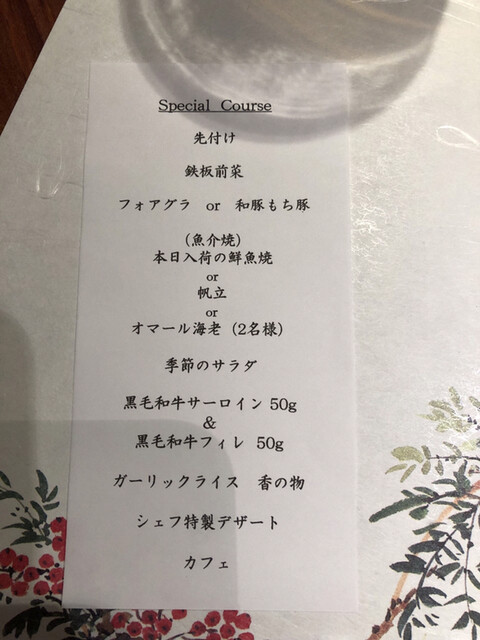 Special Course
先付け
鉄板前菜
フォアグラ or 和豚もち豚
(魚介焼)
本日入荷の鮮魚焼
or
帆立
or
オマール海老 (2名様)
季節のサラダ
黒毛和牛サーロイン 50g
&
黒毛和牛フィレ 50g
ガーリックライス 香の物
シェフ特製デザート
カフェ